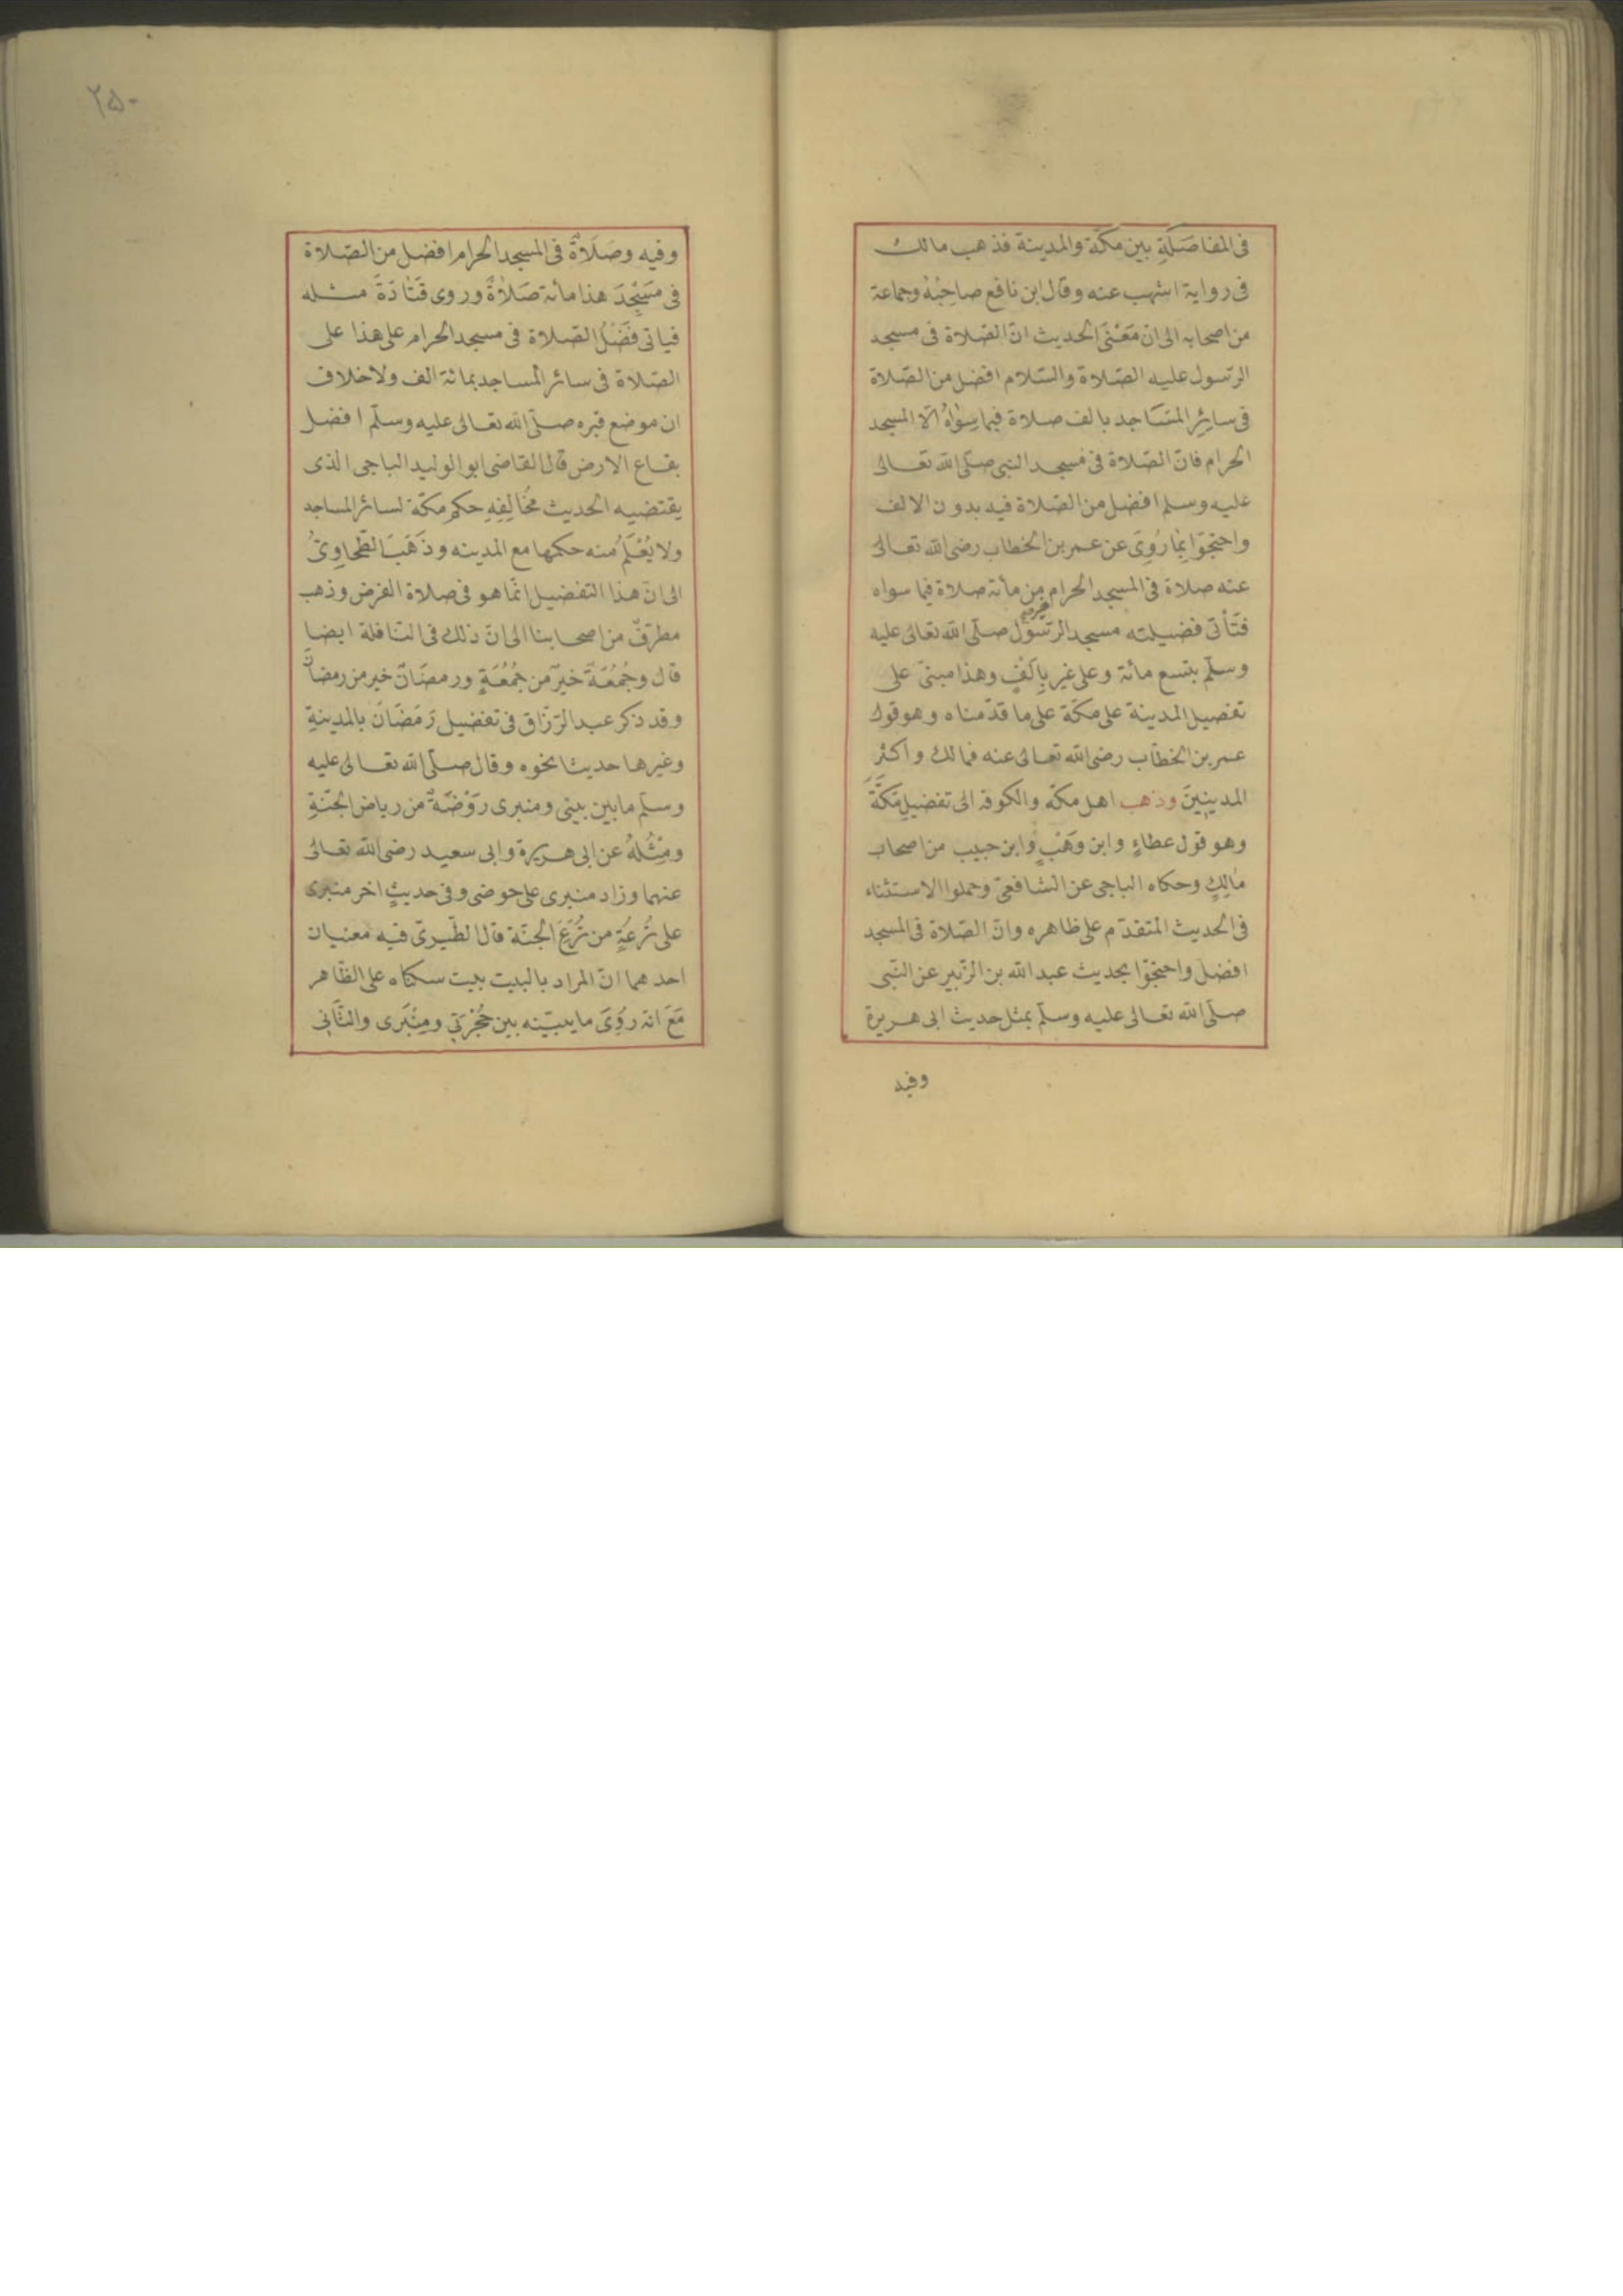 فى المفاضَلَةِ بين مكّة والمدينة فذهب مالك
فى رواية اشهب عنه وقال ابن نافع صاحِبُهُ وجماعة
من اصحابه الى انّ مَعْنَى الحديث انّ الصّلاة فى مسجد
الرّسول عليه الصّلاة والسّلام افضل من الصّلاة
فى سائِرِ المسَاجد بالف صلاة فيما سِوَاهُ الّا المسجد
الحرام فانّ الصّلاة فى مسجد النبى صلّى الله تعالى
عليه وسلم افضل من الصّلاة فيه بدون الالف
واحتجّوا بِمَا رُوِىَ عن عمر بن الخطاب رضى الله تعالى
عنه صلاة فى المسجد الحرام من مأة صلاة فيما سواه
فتَأتى فضيلته مسجد الرّسول صلّى الله تعالى عليه
وسلّم بتسع مائة وعلى غيره بِاَلْفٍ وهذا مبنىّ على
تفضيل المدينة على مكّة على ما قدّمناه وهو قول
عمر بن الخطّاب رضى الله تعالى عنه فمالك واكثر
المدينينَ وذهب اهل مكة والكوفه الى تفضيلِ مكَّةَ
وهو قول عطاءٍ وابن وَهْبٍ وابن حبيب من اصحاب
مَالِكٍ وحكاه الباجى عن الشافعىّ وحملوا الاستثناء
فى الحديث المتقدّم على ظاهره وانّ الصّلاة فى المسجد
افضل واحتجّوا بحديث عبد الله بن الزّبير عن النّبى
صلّى الله تعالى عليه وسلّم بمثل حديث ابى هريرة
وفيه
٢٥٠
وفيه وصَلَاةٌ فى المسجد الحرام افضل من الصّلاة
فى مَسْجِدِ هذا مائة صَلَاةً وروى قَتَادَةَ مثله
فياتى فَضْلُ الصّلاة فى مسجد الحرام على هذا على
الصّلاة فى سائر المساجد بمائة الف ولا خلاف
ان موضع قبره صلّى الله تعالى عليه وسلّم افضل
بقاع الارض قال القاضى ابو الوليد الباجى الذى
يقتضيه الحديث مُخَالِفِهِ حكم مكّة لسائر المساجد
ولا يُعْلَمُ منه حكمها مع المدينه وذَهَبَ الطّحاوِىُّ
الى انّ هذا التفضيل انّما هو فى صلاة الفرض وذهب
مطرّفٌ من اصحابنا الى انّ ذلك فى النّافلة ايضا
قال وجُمُعَةٌ خيرٌ من جُمُعَةٍ ورمضَانٌ خير من رمضانَ
وقد ذكر عبد الرّزّاق فى تفضيل رَمَضَانَ بالمدينةِ
وغيرها حديثا نحوه وقال صلّى الله تعالى عليه
وسلّم ما بين بيتى ومنبرى رَوْضَةٌ من رياض الجنّةِ
ومِثْلُهُ عن ابى هريرة وابى سعيد رضى الله تعالى
عنهما وزاد منبرى على حوضى وفى حديثٍ اخر منبرى
على تُرعَةٍ من تُرَعِ الجنّة قال الطّبرىّ فيه معنيان
احدهما انّ المراد بالبيت بيت سكناه على الظّاهر
مَعَ انّه رُوِىَ ما يبيّنه بين حُجْرَتِى ومِنْبَرى والثَّانِى